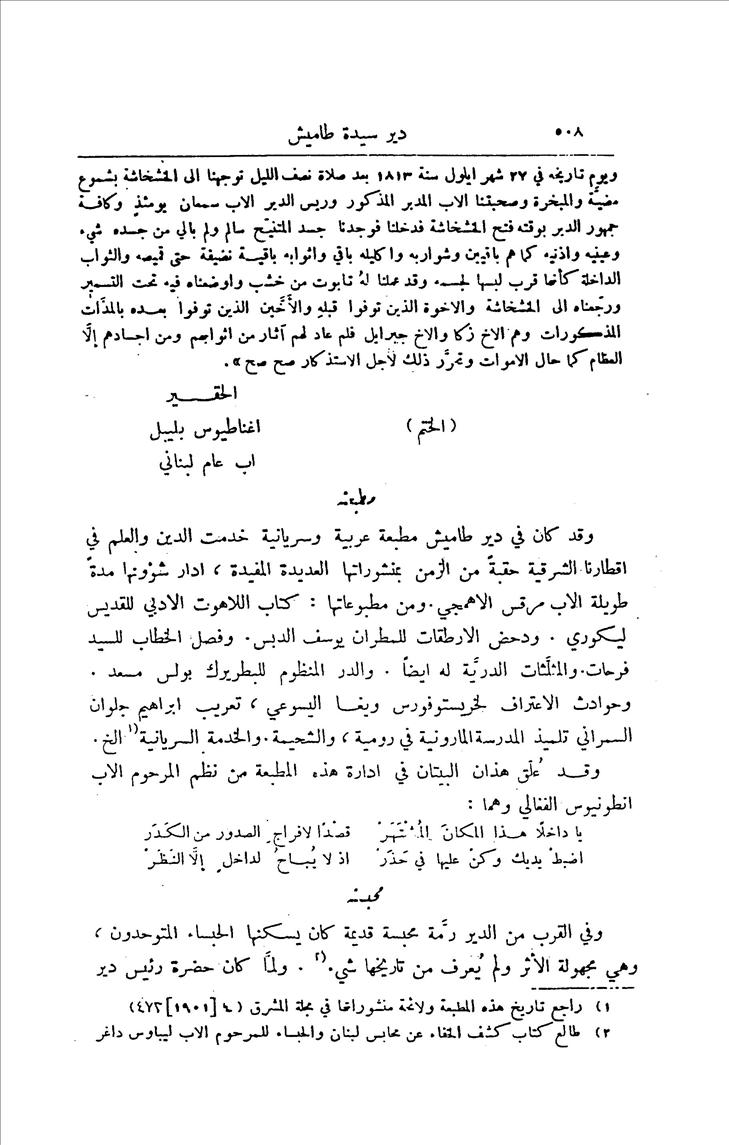 ٥٠٨ دير سيدة طاميش
ويوم تاريخه في ٢٧ شهر ايلول سنة ١٨١٣ بعد صلاة نصف الليل توجهنا الى الخشخاشة بشموع
مضيَّة والمبخرة وصحبتنا الاب المدبر المذكور وريس الدير الاب سمعان يومئذٍ وكافة
جمهور الدير بوقته فتح الخشخاشة فدخلنا فوجدنا جسد المتنيّح سالم ولم بالي من جسده شيء
وعينيه واذنيه كما هم باقيين وشواربه واكليله باقي واثوابه باقية نضيفة حتى قميصه والثواب
الداخلة كأنها قرب لبسها لجسمه وقد عملنا لهُ تابوت من خشب واوضعناه فيه تحت التسمير
ورجّعناه الى الخشخاشة والاخوة الذين توفوا قبله والأَخَّين الذين توفوا بعده بالمدَّات
المذكورات وهم الاخ زكا والاخ جبرايل فلم عاد لهم آثار من اثوابهم ومن اجسادهم إلَّا
العظام كما حال الاموات وتحرَّر ذلك لأجل الاستذكار صح صح».
الحقـــير
(الختم) اغناطيوس بليبل
اب عام لبناني
مطبعته
وقد كان في دير طاميش مطبعة عربية وسريانية خدمت الدين والعلم في
اقطارنا الشرقية حقبةً من الزمن بمنشوراتها العديدة المفيدة ، ادار شؤونها مدةً
طويلة الاب مرقس الاهمجي. ومن مطبوعاتها : كتاب اللاهوت الادبي للقديس
ليكوري . ودحض الارطقات للمطران يوسف الدبس. وفصل الخطاب للسيد
فرحات. والمثلَّثات الدريَّة له ايضاً . والدر المنظوم للبطريرك بولس مسعد .
وحوادث الاعتراف لخريستوفورس ويغا اليسوعي ، تعريب ابراهيم جلوان
السمراني تلميذ المدرسة المارونية في رومية ، والشحيمة. والخدمة السريانية(١ الخ.
وقد عُلّق هذان البيتان في ادارة هذه المطبعة من نظم المرحوم الاب
انطونيوس الفغالي وهما :
يا داخلًا هـذا المكانَ المُشْتَهَرْ قصْدًا لافراجِ الصدور من الكَدَر
اضبطْ يديك وكنْ عليها في حَذَرْ اذ لا يُبـاحُ لداخلٍ إلَّا النَظَرْ
محبسته
وفي القرب من الدير رمَّة محبسة قديمة كان يسكنها الحبساء المتوحدون ،
وهي مجهولة الأثر ولم يُعرف من تاريخها شيء(٢ . ولمَّا كان حضرة رئيس دير
١) راجع تاريخ هذه المطبعة ولائحة منشوراتها في مجلة المشرق (٤ [١٩٠١] ٤٧٣)
٢) طالع كتاب كشف الخفاء عن محابس لبنان والحبساء للمرحوم الاب ليباوس داغر